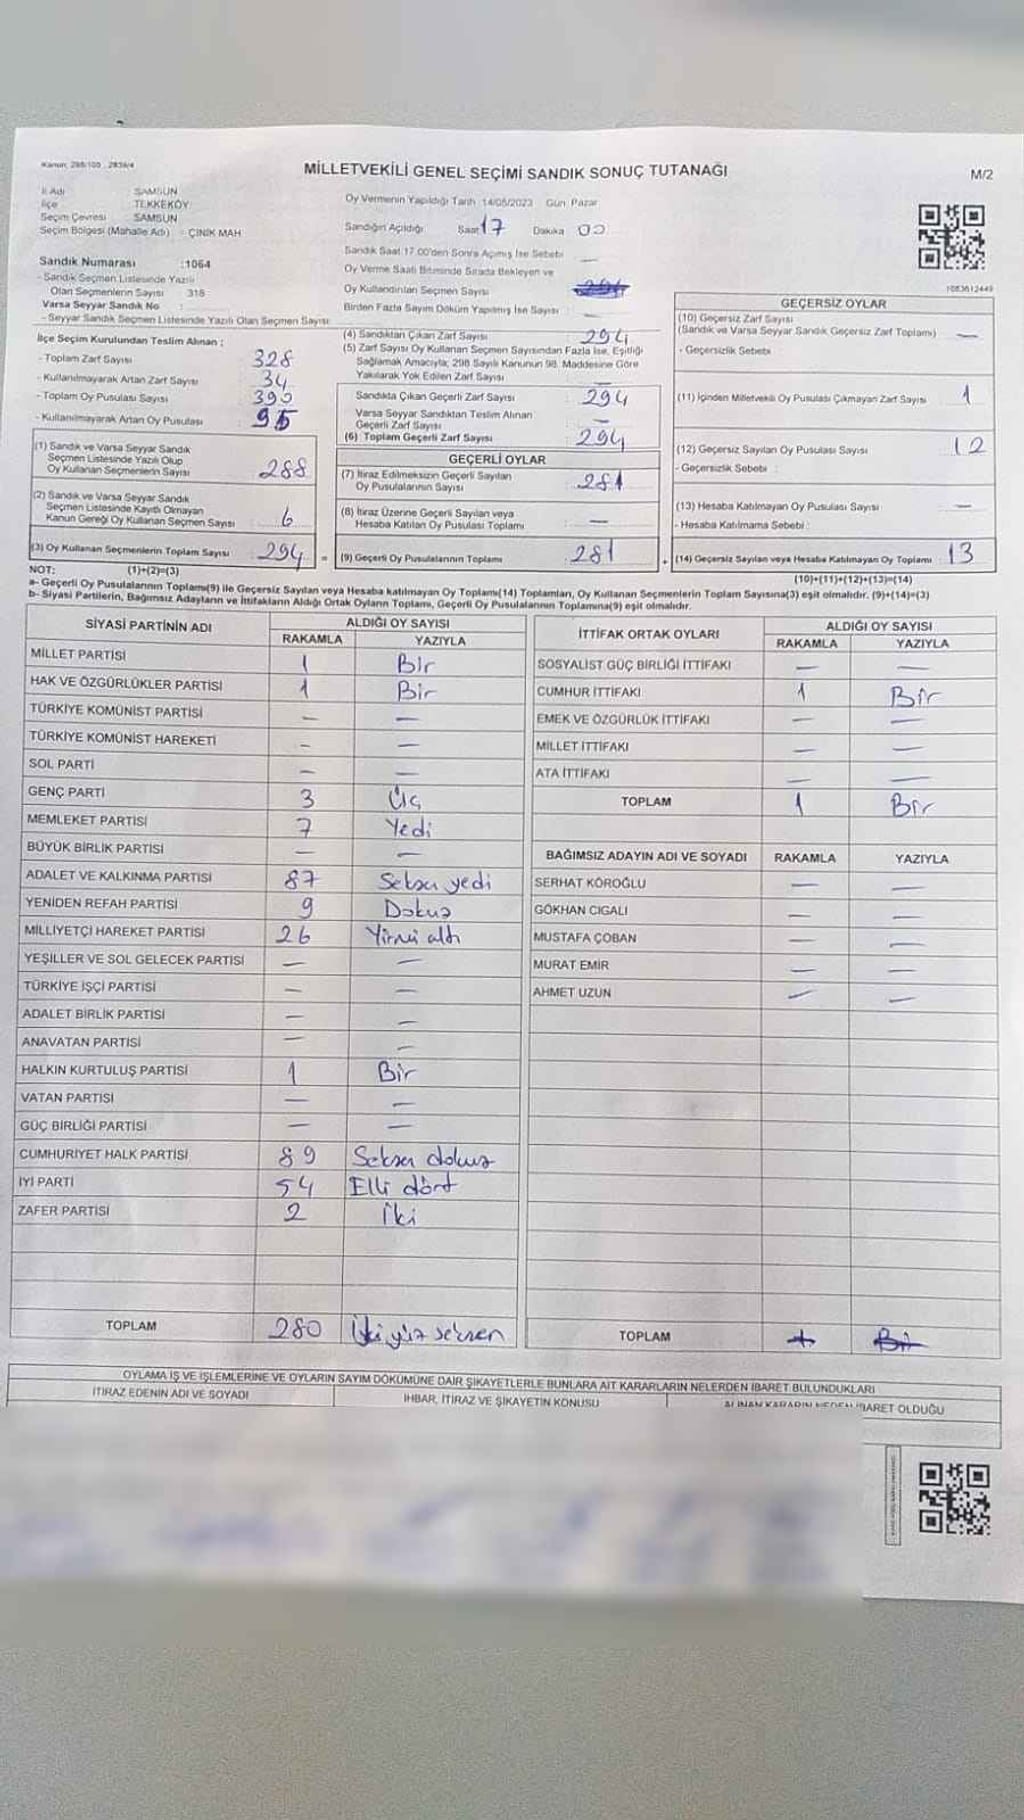 Kanun: 298/105 , 2839/4
MİLLETVEKİLİ GENEL SEÇİMİ SANDIK SONUÇ TUTANAĞI
M/2
İl Adı : SAMSUN
İlçe : TEKKEKÖY
Seçim Çevresi : SAMSUN
Seçim Bölgesi (Mahalle Adı) : ÇINIK MAH
Oy Vermenin Yapıldığı Tarih 14/05/2023 Gün Pazar
Sandığın Açıldığı Saat 17 Dakika 00
Sandık Saat 17:00'den Sonra Açılmış İse Sebebi —
Oy Verme Saati Bitiminde Sırada Bekleyen ve
Oy Kullandırılan Seçmen Sayısı
Birden Fazla Sayım Döküm Yapılmış İse Sayısı : —
Sandık Numarası :1064
- Sandık Seçmen Listesinde Yazılı
Olan Seçmenlerin Sayısı 318
Varsa Seyyar Sandık No :
- Seyyar Sandık Seçmen Listesinde Yazılı Olan Seçmen Sayısı:
İlçe Seçim Kurulundan Teslim Alınan :
- Toplam Zarf Sayısı 328
- Kullanılmayarak Artan Zarf Sayısı 34
- Toplam Oy Pusulası Sayısı
- Kullanılmayarak Artan Oy Pusulası 95
(1) Sandık ve Varsa Seyyar Sandık
Seçmen Listesinde Yazılı Olup
Oy Kullanan Seçmenlerin Sayısı 288
(2) Sandık ve Varsa Seyyar Sandık
Seçmen Listesinde Kayıtlı Olmayan
Kanun Gereği Oy Kullanan Seçmen Sayısı 6
(3) Oy Kullanan Seçmenlerin Toplam Sayısı 294 =
(4) Sandıktan Çıkan Zarf Sayısı 294
(5) Zarf Sayısı Oy Kullanan Seçmen Sayısından Fazla İse, Eşitliği
Sağlamak Amacıyla; 298 Sayılı Kanunun 98. Maddesine Göre
Yakılarak Yok Edilen Zarf Sayısı —
Sandıkta Çıkan Geçerli Zarf Sayısı 294
Varsa Seyyar Sandıktan Teslim Alınan
Geçerli Zarf Sayısı —
(6) Toplam Geçerli Zarf Sayısı 294
GEÇERLİ OYLAR
(7) İtiraz Edilmeksizin Geçerli Sayılan
Oy Pusulalarının Sayısı 281
(8) İtiraz Üzerine Geçerli Sayılan veya
Hesaba Katılan Oy Pusulası Toplamı —
(9) Geçerli Oy Pusulalarının Toplamı 281 +
1083612449
GEÇERSİZ OYLAR
(10) Geçersiz Zarf Sayısı
(Sandık ve Varsa Seyyar Sandık Geçersiz Zarf Toplamı) —
- Geçersizlik Sebebi
(11) İçinden Milletvekili Oy Pusulası Çıkmayan Zarf Sayısı 1
(12) Geçersiz Sayılan Oy Pusulası Sayısı 12
- Geçersizlik Sebebi :
(13) Hesaba Katılmayan Oy Pusulası Sayısı —
- Hesaba Katılmama Sebebi :
(14) Geçersiz Sayılan veya Hesaba Katılmayan Oy Toplamı 13
NOT: (1)+(2)=(3)
(10)+(11)+(12)+(13)=(14)
a- Geçerli Oy Pusulalarının Toplamı(9) ile Geçersiz Sayılan veya Hesaba katılmayan Oy Toplamı(14) Toplamları, Oy Kullanan Seçmenlerin Toplam Sayısına(3) eşit olmalıdır. (9)+(14)=(3)
b- Siyasi Partilerin, Bağımsız Adayların ve İttifakların Aldığı Ortak Oyların Toplamı, Geçerli Oy Pusulalarının Toplamına(9) eşit olmalıdır.
SİYASİ PARTİNİN ADI ALDIĞI OY SAYISI
RAKAMLA YAZIYLA
MİLLET PARTİSİ 1 Bir
HAK VE ÖZGÜRLÜKLER PARTİSİ 1 Bir
TÜRKİYE KOMÜNİST PARTİSİ — —
TÜRKİYE KOMÜNİST HAREKETİ — —
SOL PARTİ — —
GENÇ PARTİ 3 Üç
MEMLEKET PARTİSİ 7 Yedi
BÜYÜK BİRLİK PARTİSİ — —
ADALET VE KALKINMA PARTİSİ 87 Seksen yedi
YENİDEN REFAH PARTİSİ 9 Dokuz
MİLLİYETÇİ HAREKET PARTİSİ 26 Yirmi altı
YEŞİLLER VE SOL GELECEK PARTİSİ — —
TÜRKİYE İŞÇİ PARTİSİ — —
ADALET BİRLİK PARTİSİ — —
ANAVATAN PARTİSİ — —
HALKIN KURTULUŞ PARTİSİ 1 Bir
VATAN PARTİSİ — —
GÜÇ BİRLİĞİ PARTİSİ — —
CUMHURİYET HALK PARTİSİ 89 Seksen dokuz
İYİ PARTİ 54 Elli dört
ZAFER PARTİSİ 2 İki
TOPLAM 280 İki yüz seksen
İTTİFAK ORTAK OYLARI ALDIĞI OY SAYISI
RAKAMLA YAZIYLA
SOSYALİST GÜÇ BİRLİĞİ İTTİFAKI — —
CUMHUR İTTİFAKI 1 Bir
EMEK VE ÖZGÜRLÜK İTTİFAKI — —
MİLLET İTTİFAKI — —
ATA İTTİFAKI — —
TOPLAM 1 Bir
BAĞIMSIZ ADAYIN ADI VE SOYADI RAKAMLA YAZIYLA
SERHAT KÖROĞLU — —
GÖKHAN CIGALI — —
MUSTAFA ÇOBAN — —
MURAT EMİR — —
AHMET UZUN — —
TOPLAM 1 Bir
OYLAMA İŞ VE İŞLEMLERİNE VE OYLARIN SAYIM DÖKÜMÜNE DAİR ŞİKAYETLERLE BUNLARA AİT KARARLARIN NELERDEN İBARET BULUNDUKLARI
İTİRAZ EDENİN ADI VE SOYADI
İHBAR, İTİRAZ VE ŞİKAYETİN KONUSU
ALINAN KARARIN NEDEN İBARET OLDUĞU